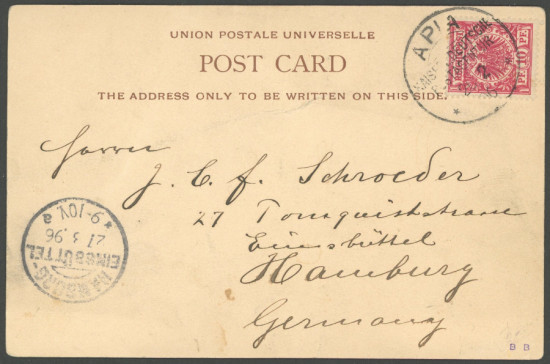 UNION POSTALE UNIVERSELLE
POST CARD
THE ADDRESS ONLY TO BE WRITTEN ON THIS SIDE.
APIA
10 PF
Herrn
J. C. F. Schroeder
27 Tornquiststrasse
Eimsbüttel
Hamburg
Germany
HAMBURG-
EIMSBÜTTEL
21 3.96
9-10V.
a
B B